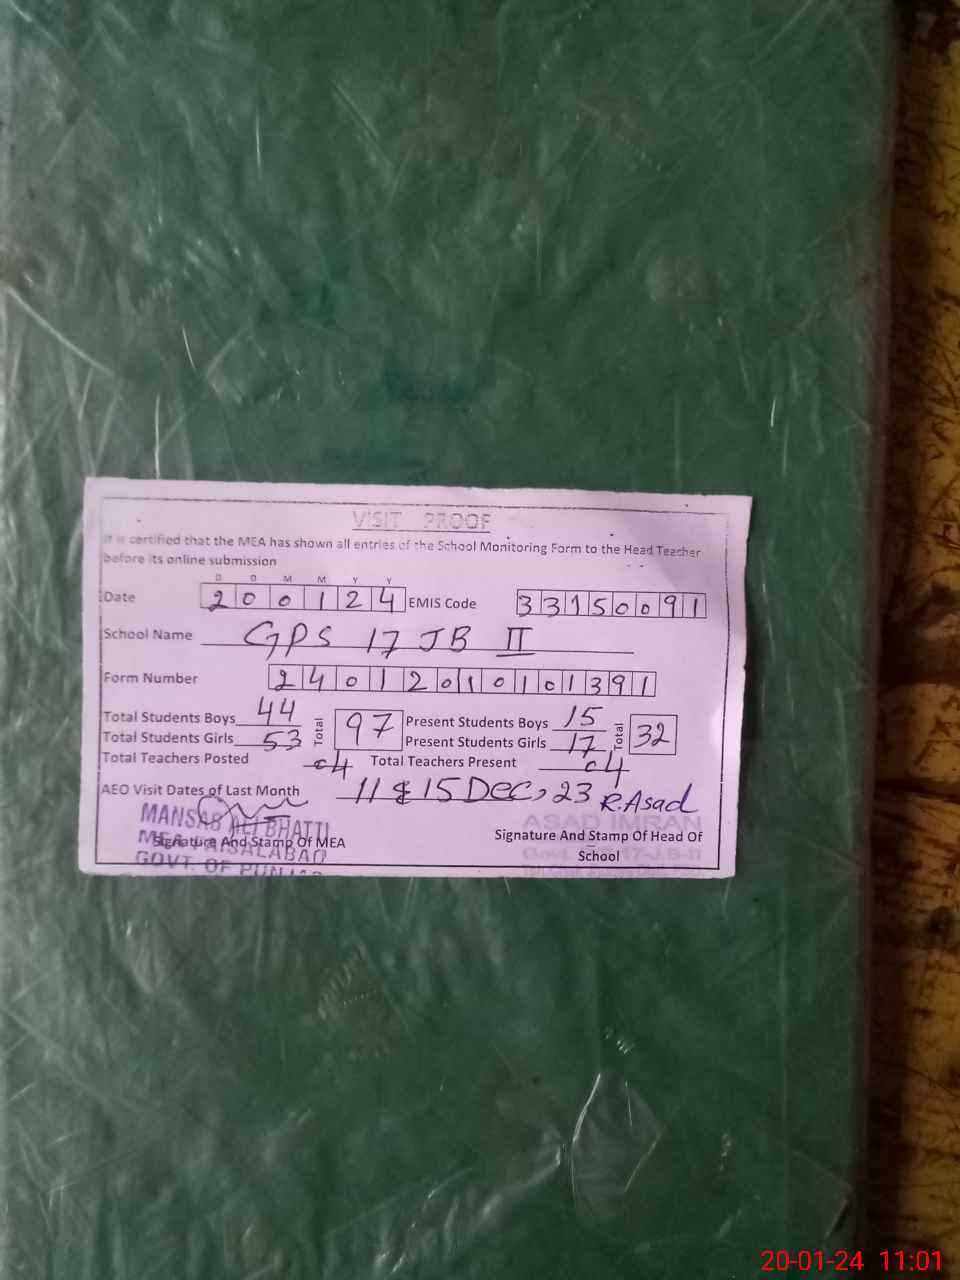 VISIT PROOF
It is certified that the MEA has shown all entries of the School Monitoring Form to the Head Teacher
before its online submission
D D M M Y Y
Date 2 0 0 1 2 4 EMIS Code 3 3 1 5 0 0 9 1
School Name GPS 17 JB II
Form Number 2 4 0 1 2 0 1 0 1 0 1 3 9 1
Total Students Boys 44 Total 97 Present Students Boys 15 Total 32
Total Students Girls 53 Present Students Girls 17
Total Teachers Posted 04 Total Teachers Present 04
AEO Visit Dates of Last Month 11 & 15 Dec, 23 R.Asad
MANSAB ALI BHATTI
ASAD IMRAN
Signature And Stamp Of MEA
MEA FAISALABAD
GOVT. OF PUNJAB
Signature And Stamp Of Head Of
School
Govt. 17-J.B-II
20-01-24 11:01